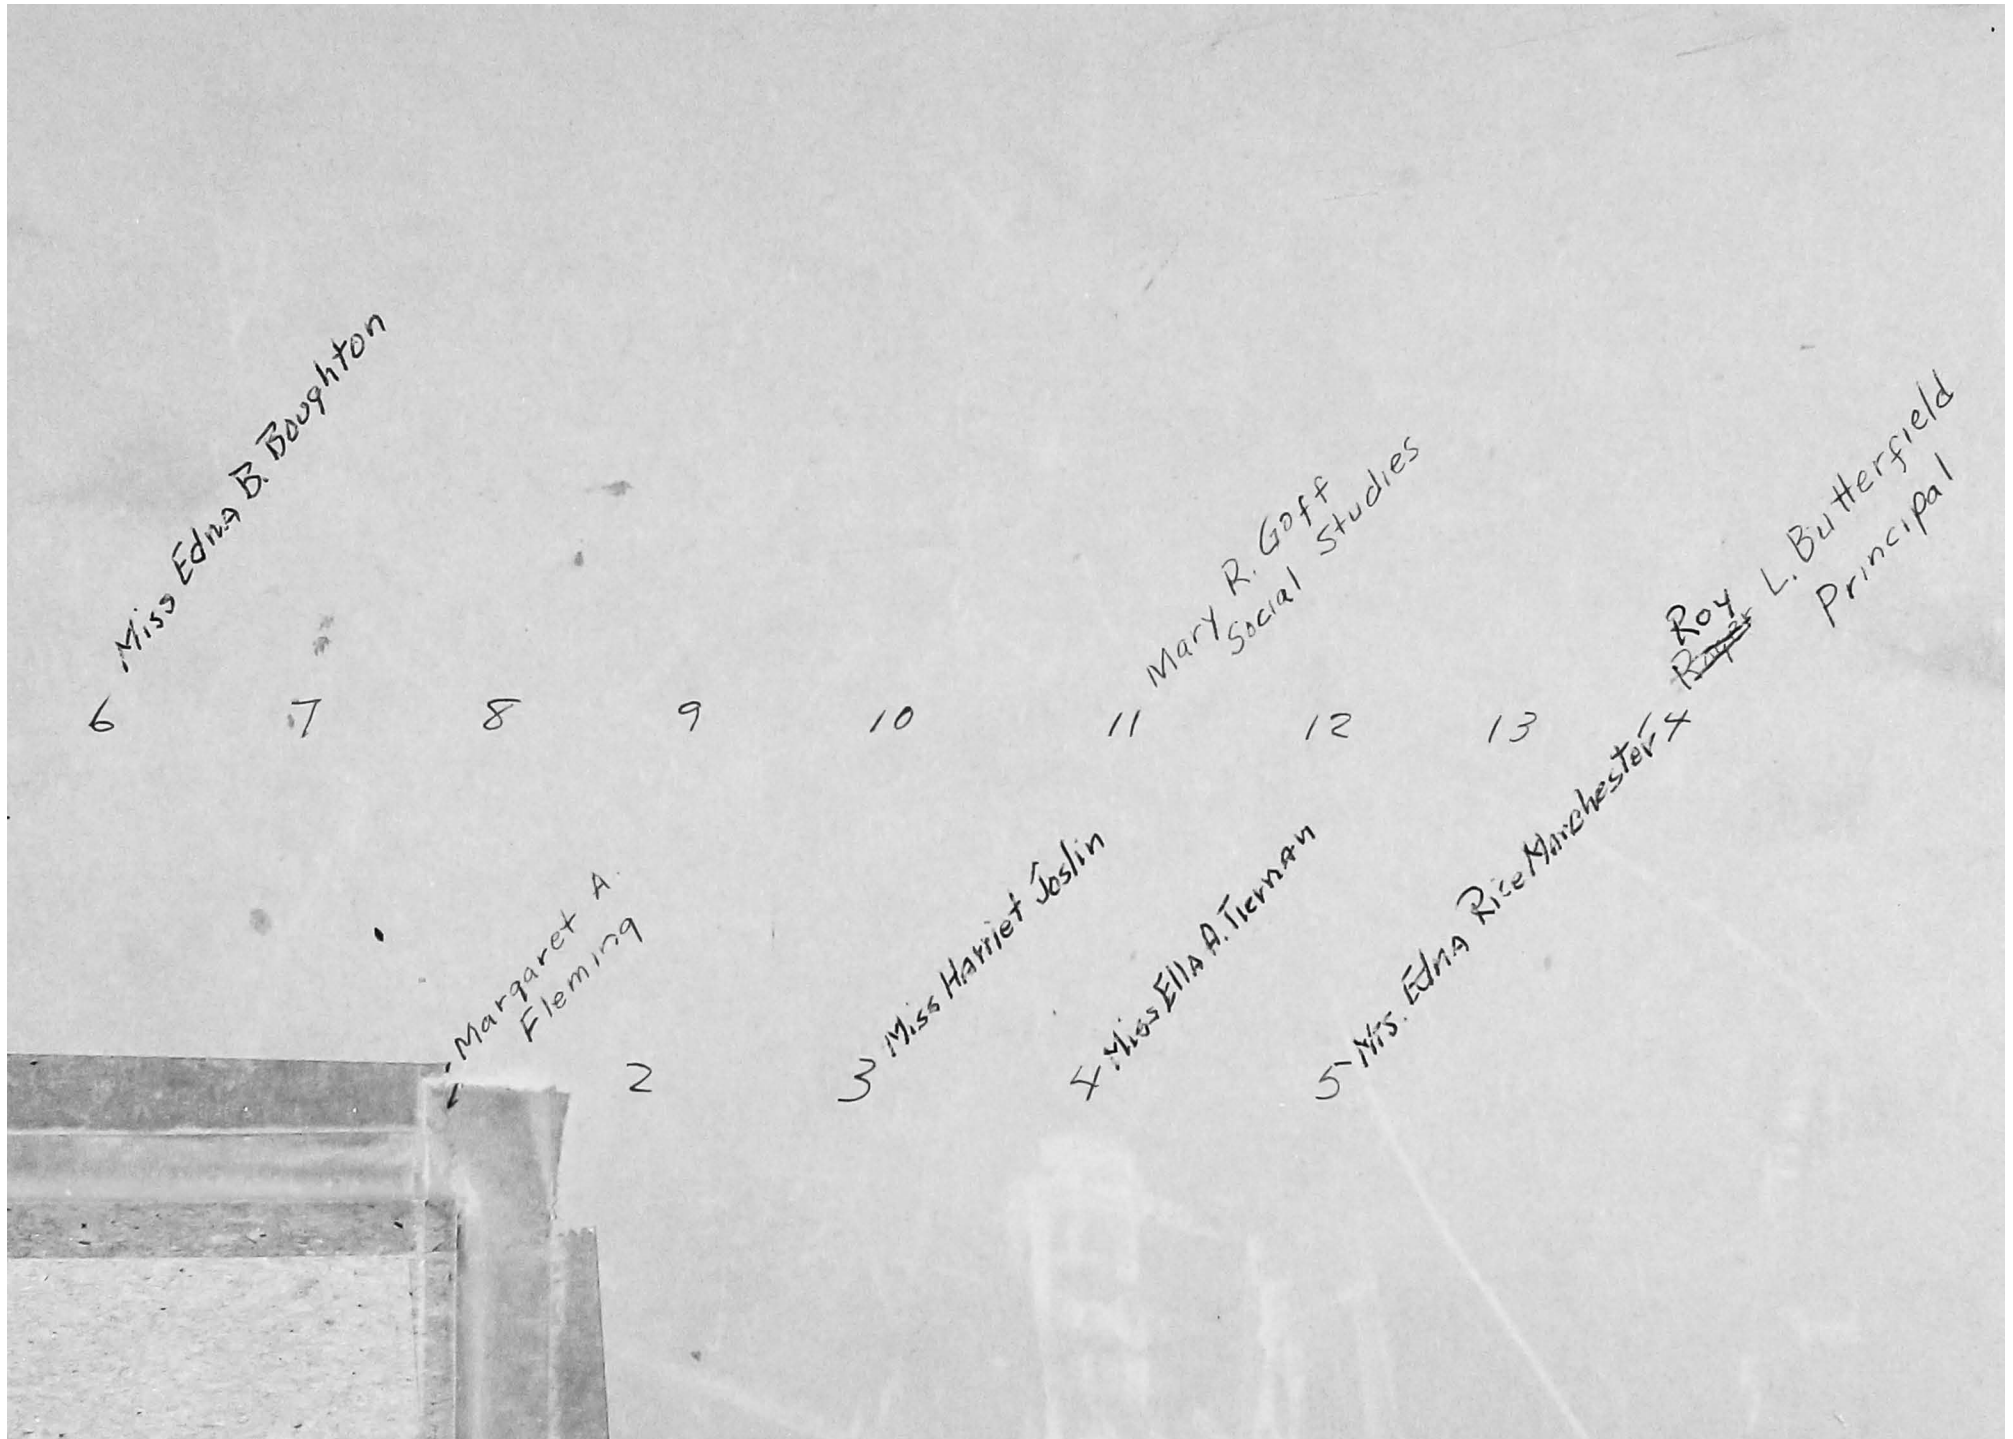 6 Miss Edna B. Boughton
7
8
9
10
11 Mary R. Goff
Social Studies
12
13
14 Roy L. Butterfield
Principal
1 Margaret A.
Fleming
2
3 Miss Harriet Joslin
4 Miss Ella A. Tiernan
5 Mrs. Edna Rice Marchester